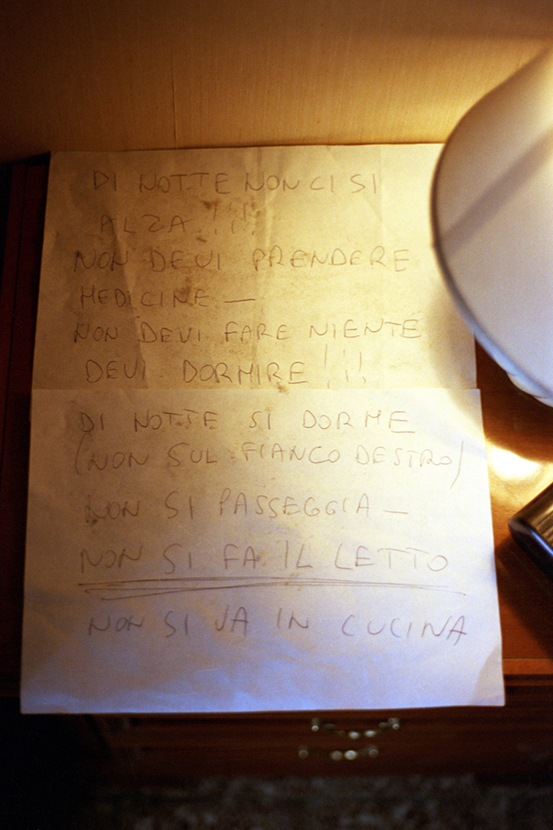 DI NOTTE NON CI SI
ALZA !!!
NON DEVI PRENDERE
MEDICINE —
NON DEVI FARE NIENTE
DEVI DORMIRE !!!
DI NOTTE SI DORME
(NON SUL FIANCO DESTRO)
NON SI PASSEGGIA —
NON SI FA IL LETTO
NON SI VA IN CUCINA